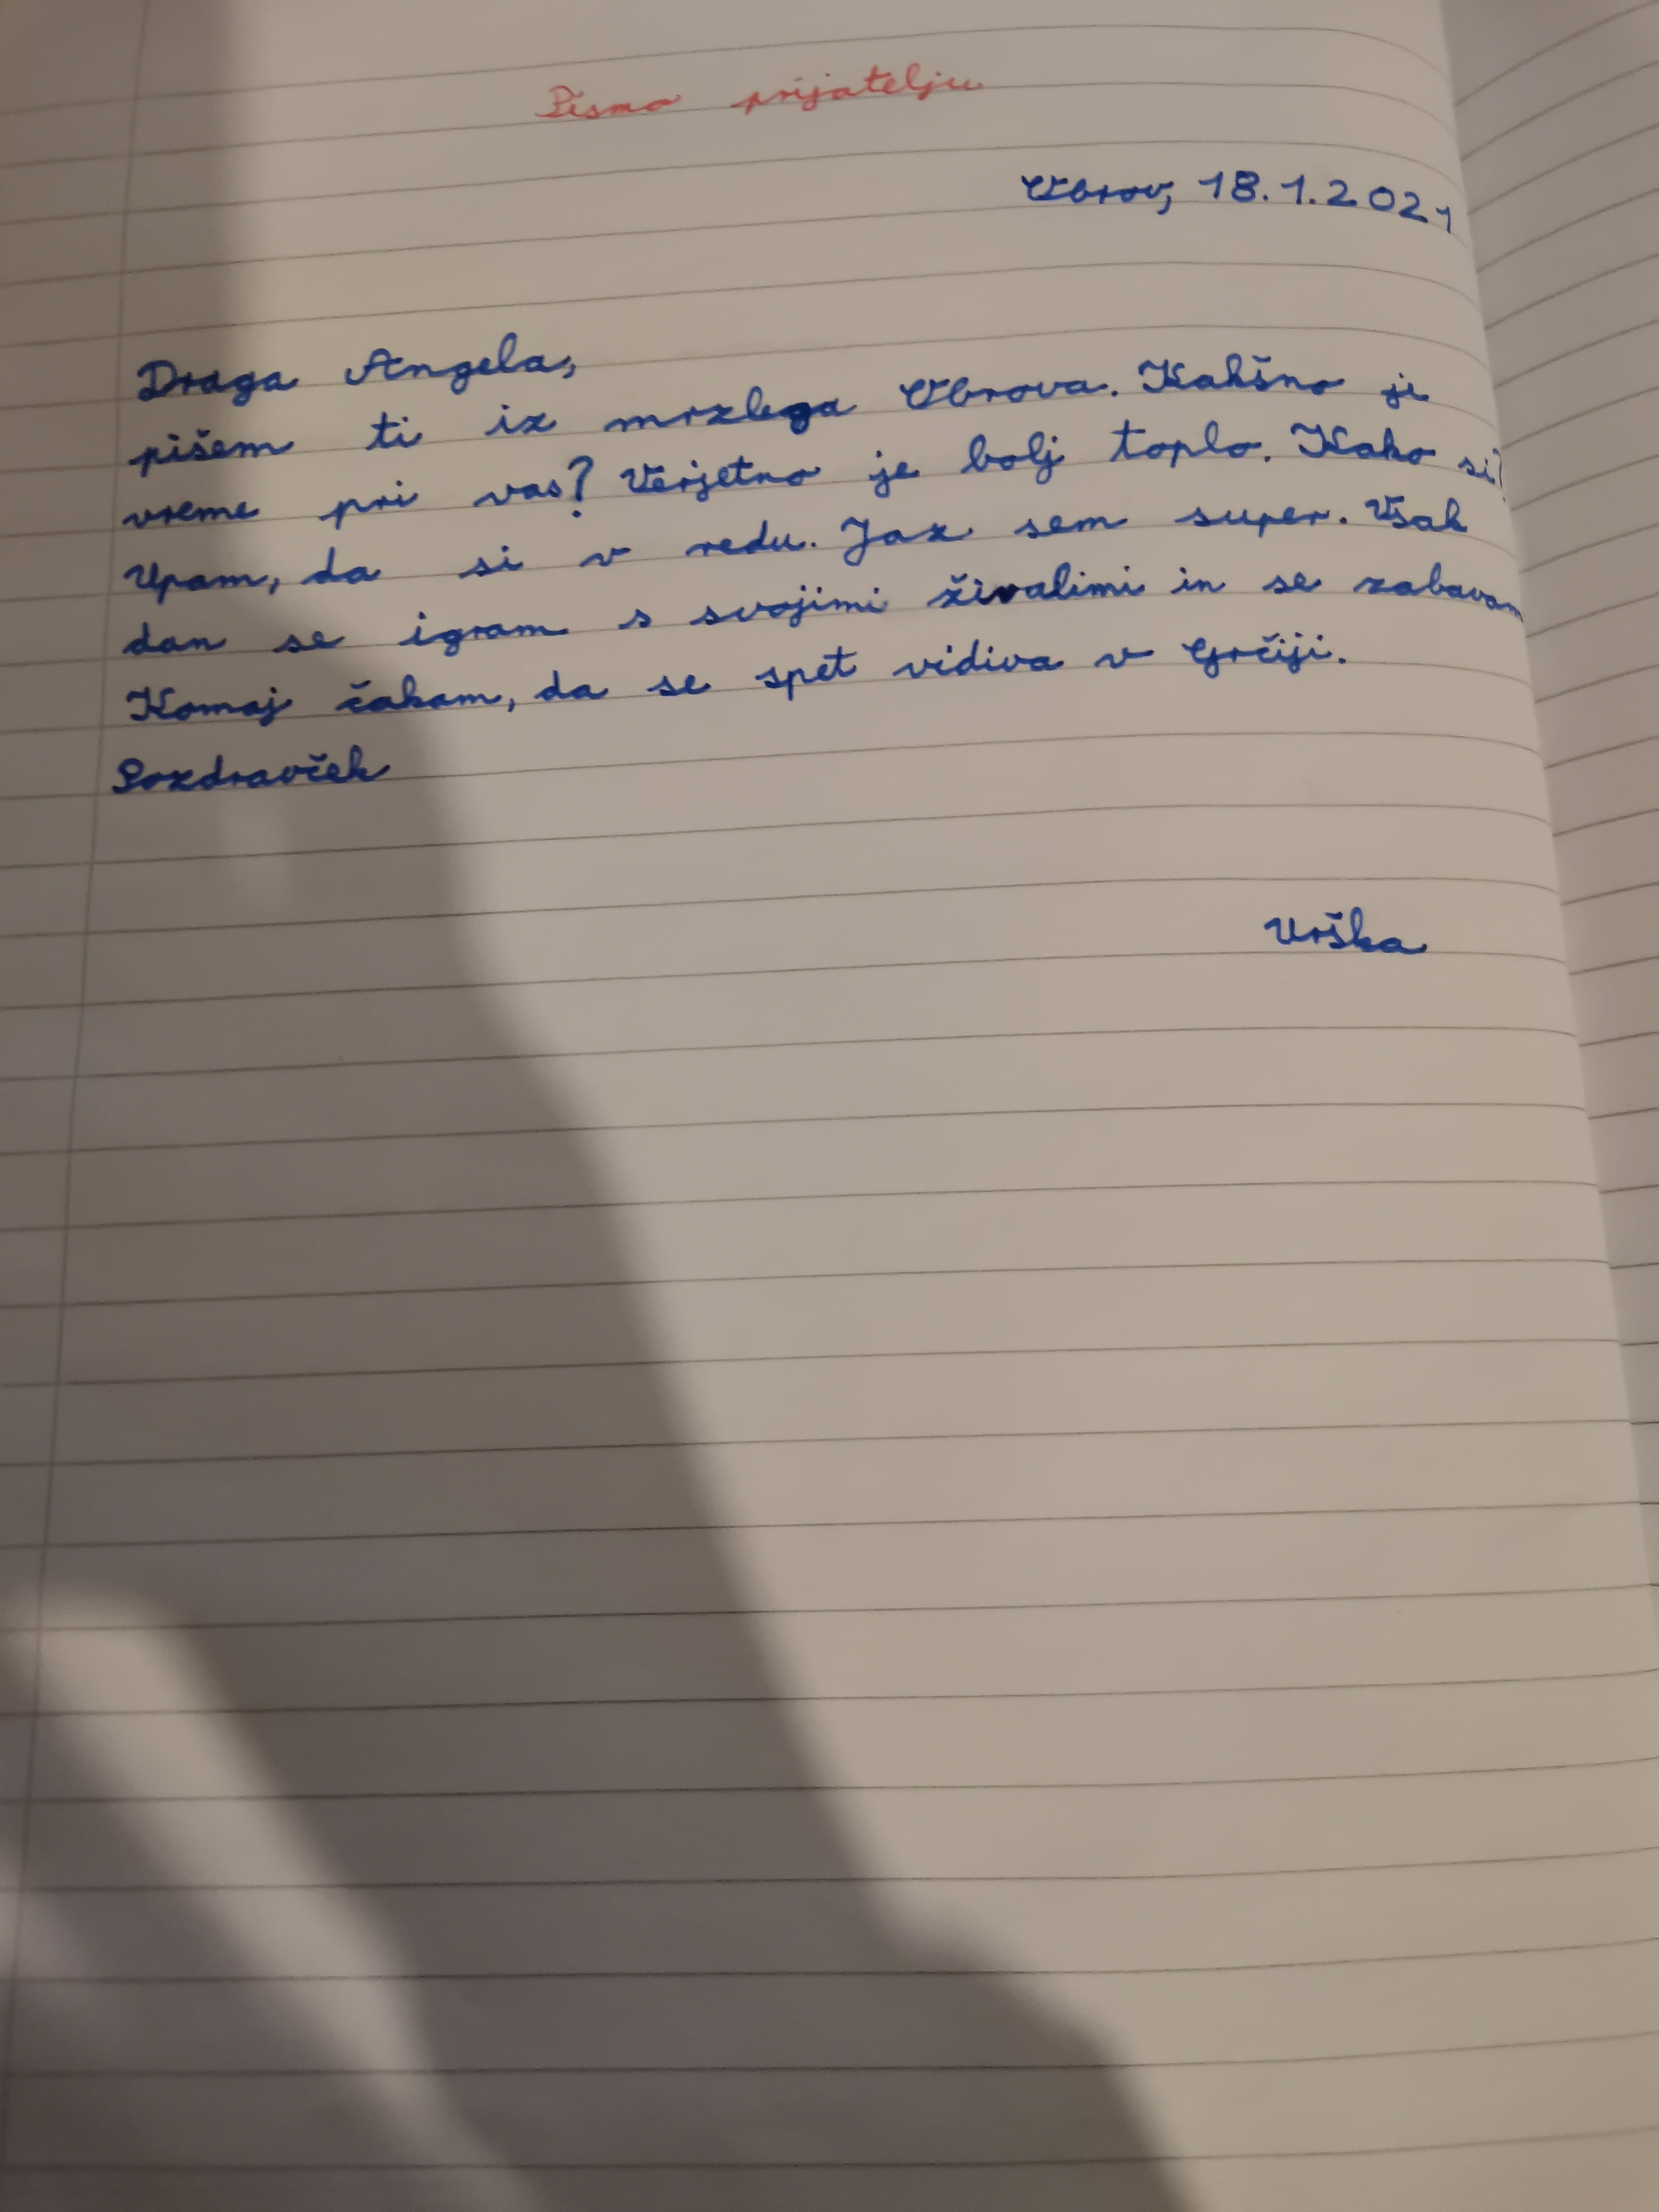 Pismo prijatelju
Obrov, 18.1.2021
Draga Angela,
pišem ti iz mrzlega Obrova. Kakšno je
vreme pri vas? Verjetno je bolj toplo. Kako si?
Upam, da si v redu. Jaz sem super. Vsak
dan se igram s svojimi živalimi in se zabavam
Komaj čakam, da se spet vidiva v Grčiji.
Pozdravček
Urška